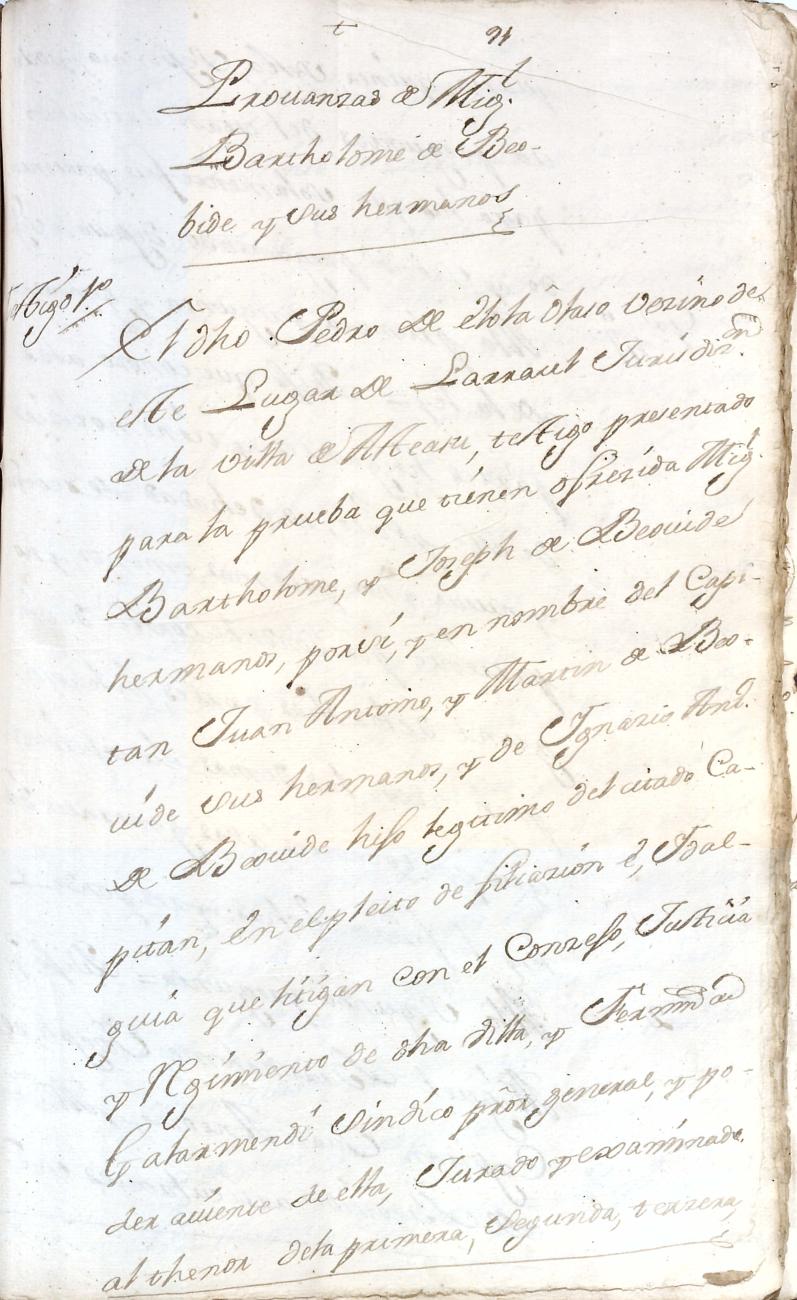 94
Prouanzas de Mig.l
Bartholome de Beo-
bide y sus hermanos
testigo 1º
El dho Pedro de vezino de
este Lugar de Larraul Jurisdizon
de la villa de Asteasu, testigo presentado
para la prueba que tienen ofrezida Mig.l
Bartholome, y Joseph de Beouide
hermanos, por si, y en nombre del Capi-
tan Juan Antonio, y Martin de Beo-
uide sus hermanos, y de Ignazio Ant.
de Beouide hijo legitimo del citado Ca-
pitan, en el pleito de filiazion é, Idal-
guia que litigan con el Conzejo, Justicia
y Rejimiento de dha villa, y Fernando
Gatarmendi Sindico pror general, y po-
der auiente de ella, Jurado y examinado
al thenor dela primera, segunda, terzera,